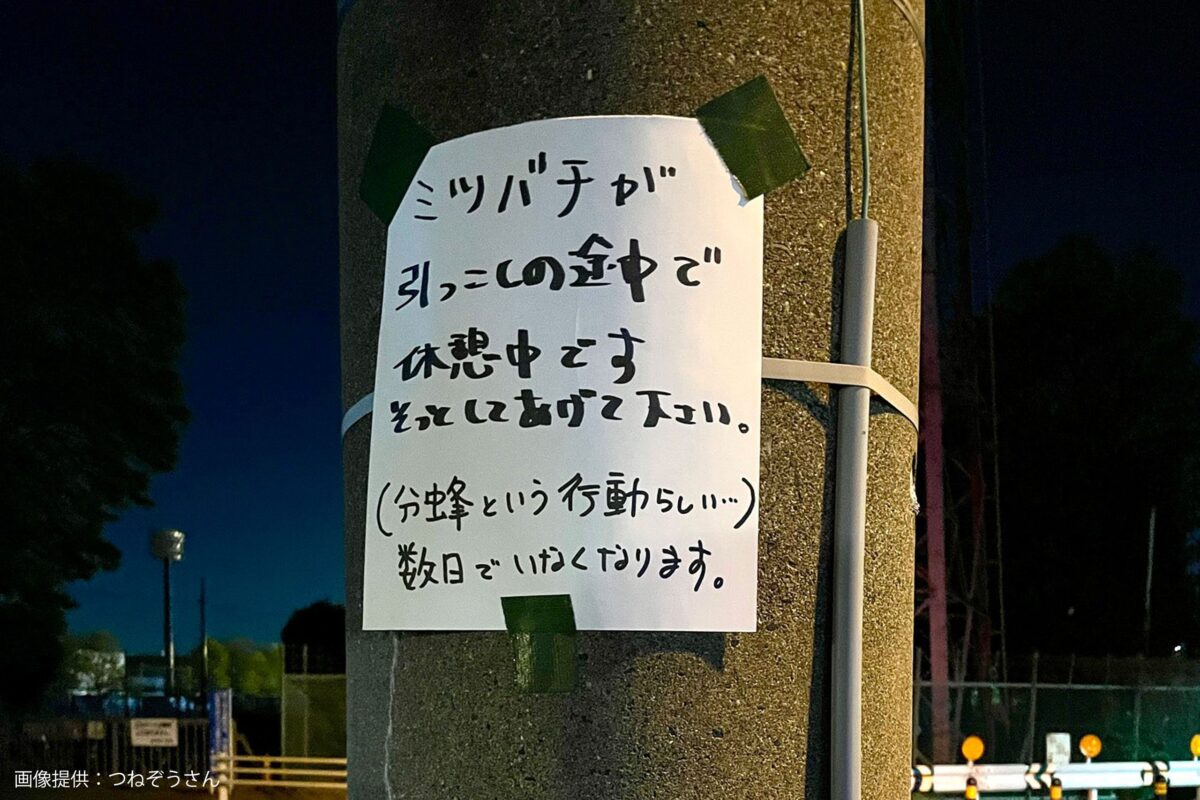 ミツバチが
引っこしの途中で
休憩中です
そっとしてあげて下さい。
(分蜂という行動らしい…)
数日でいなくなります。
画像提供：つねぞうさん